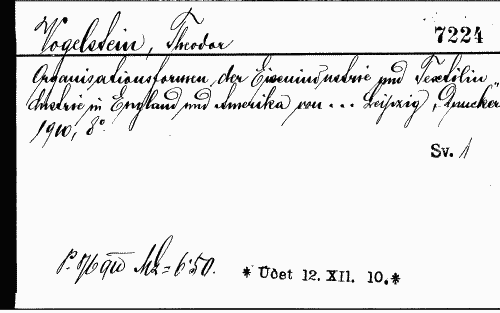 Vogelstein, Theodor
7224
Organisationsformen der Eisenindustrie und Textilin„
dustrie in England und Amerika von ... Leipzig, Duncker
1910, 8°.
Sv. 1
M = 6·50.
* Udet 12. XII. 10. *